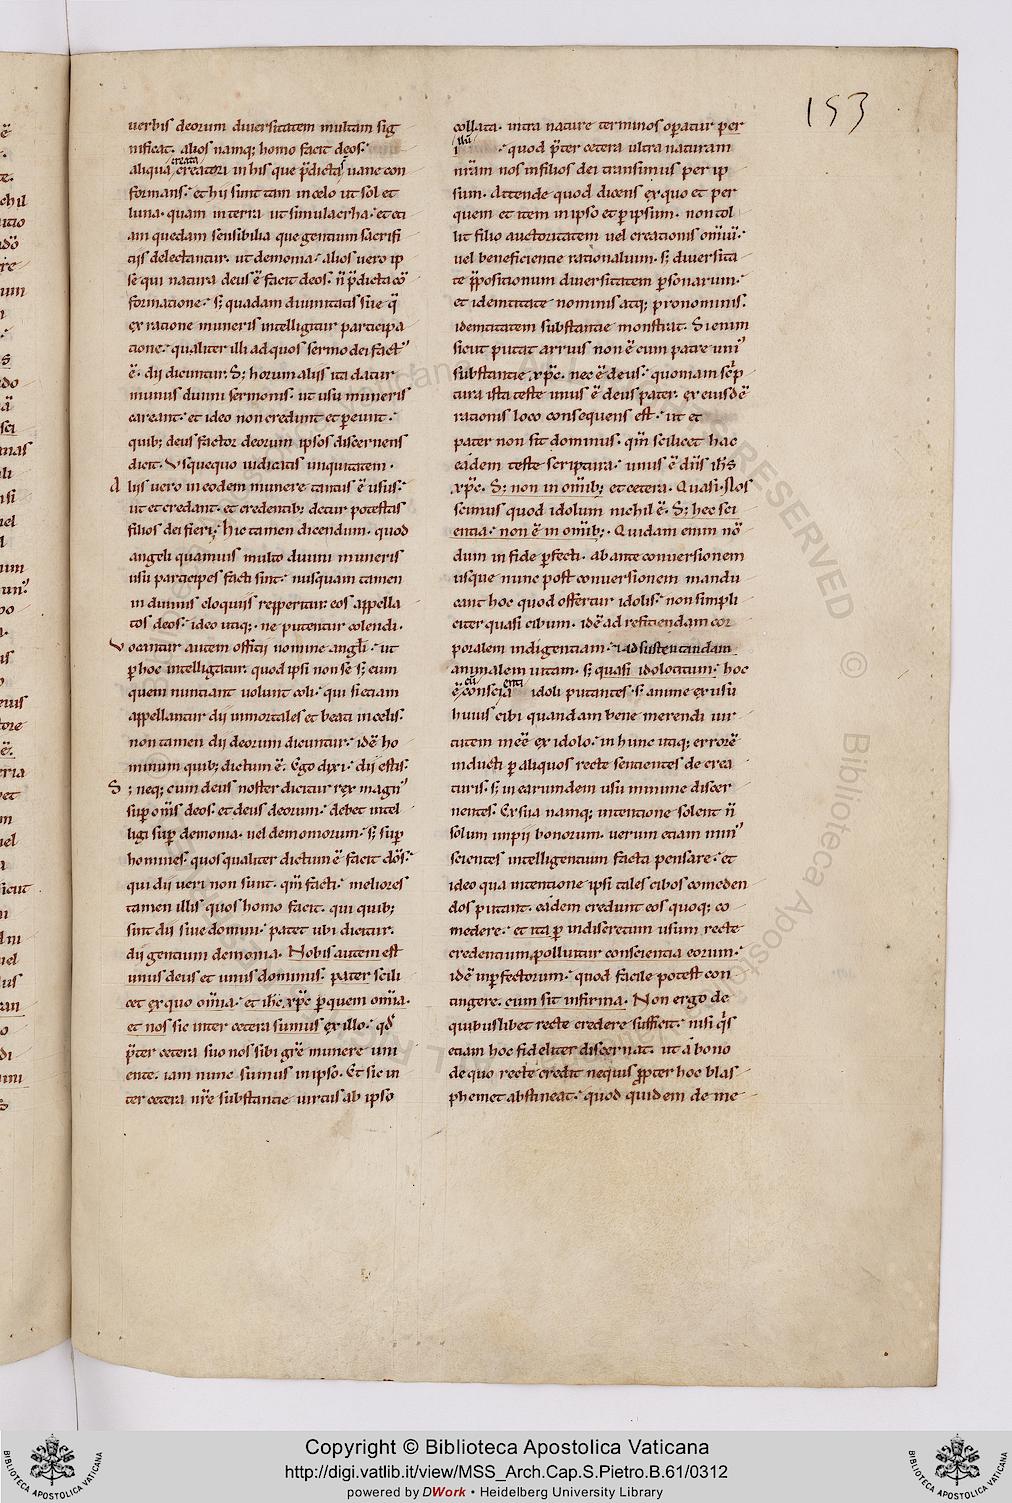 153
uerbis deorum diuersitatem multam sig
nificat. alios namq; homo facit deos.
aliqua creata creatori in his que p̄dictaſ uane con
formans. et hii sunt tam in celo ut sol et
luna. quam in terra ut simulacrha. et eti
am quedam sensibilia que gentium sacrifi
tijs delectantur. ut demonia. alios uero ip
se qui natura deus ē facit deos. n̄ p̄dicta cō
formatione. s; quadam diuinitatis sue q̄
ex ratione muneris intelligitur participa
tione. qualiter illi ad quos sermo dei fact'
ē. dii dicuntur. S; horum aliis ita datur
munus diuini sermonis. ut usu muneris
careant. et ideo non credunt et p̱eunt.
quib; deus factor deorum ipsos discernens
dicit. Usquequo iudicatis iniquitatem.
Aliis uero in eodem munere tantus ē usus.
ut et credant. et credentib; detur potestas
filios dei fieri. hic tamen dicendum. quod
angeli quamuis multo diuini muneris
usu participes facti sint. nusquam tamen
in diuinis eloquiis reppertur eos appella
tos deos. ideo utiq;. ne putentur colendi.
Vocantur autem officij nomine angl̄i. ut
p̱ hoc intelligatur. quod ipsi non se s; eum
quem nuntiant uolunt coli. qui si etiam
appellantur dii inmortales et beati in celis.
non tamen dii deorum dicuntur. idē ho
minum quib; dictum ē. Ego dixi. dii estis.
S; neq; cum deus noster dicitur rex magn'
sup̱ om̄s deos. et deus deorum. debet intel
ligi sup̱ demonia. uel demoniorum. s; sup̱
homines. quos qualiter dictum ē facit dōs.
qui dii ueri non sunt. qm̄ facti. meliores
tamen illis quos homo facit. qui quib;
sint dii siue domini. patet ubi dicitur.
dii gentium demonia. Nobis autem est
unus deus et unus dominus. pater scili
cet ex quo om̄ia. et ih̄c xp̄c p̱ quem om̄ia.
et nos sic inter cetera sumus ex illo. qd̄
p̄ter cetera suo nos sibi grē munere uni
ente. iam nunc sumus in ipso. Et sic in
ter cetera nr̄e substantie uirtus ab ipso
collata. intra nature terminos op̱atur per
illū quod p̄ter cetera ultra naturam
nr̄am nos in filios dei transimus per ip
sum. Attende quod dicens ex quo et per
quem et item in ipso et p̱ ipsum. non tol
lit filio auctoritatem uel creationis om̄iū.
uel beneficientie rationalium. s; diuersita
te p̄positionum diuersitatem p̱sonarum.
et idemtitate nominis atq; pronominis.
idemtitatem substantie monstrat. Si enim
sicut putat arrius non ē cum patre uni'
substantie xp̄c. nec ē deus. quoniam scp̄
tura ista teste unus ē deus pater. ex eiusdē
rationis loco consequens est. ut et
pater non sit dominus. qm̄ scilicet hac
eadem teste scriptura. unus ē dn̄s ih̄s
xp̄c. S; non in om̄ib; et cetera. Quasi. Nos
scimus quod idolum nichil ē. S; hec sci
entia. non ē in om̄ib;. Quidam enim nō
dum in fide p̱fecti. ab ante conuersionem
usque nunc post conuersionem mandu
cant hoc quod offertur idolis. non simpli
citer quasi cibum. idē ad reficiendam cor
poralem indigentiam. ad sustentandam
animalem uitam. s; quasi idolotitum. hoc
ē cū conscientia idoli putantes. s; anime ex usu
huius cibi quandam bene merendi uir
tutem inēē ex idolo. in hunc utiq; errorē
inducti p̱ aliquos recte sentientes de crea
turis. s; in earundem usu minime discer
nentes. Ex sua namq; intentione solent n̄
solum impii bonorum. uerum etiam min'
scientes intelligentium facta pensare. et
ideo qua intentione ipsi tales cibos comeden
dos putant. eadem credunt eos quoq; co
medere. et ita p̱ indiscretum usum recte
credentium, polluitur conscientia eorum.
idē inp̱fectorum. quod facile potest con
tingere. cum sit infirma. Non ergo de
quibuslibet recte credere sufficit. nisi q̇s
etiam hoc fideliter discernat. ut a bono
de quo recte credit nequis p̱pter hoc blas
phemet abstineat. quod quidem de me
Copyright © Biblioteca Apostolica Vaticana
http://digi.vatlib.it/view/MSS_Arch.Cap.S.Pietro.B.61/0312
powered by DWork • Heidelberg University Library
BIBLIOTECA APOSTOLICA VATICANA
BIBLIOTECA APOSTOLICA VATICANA